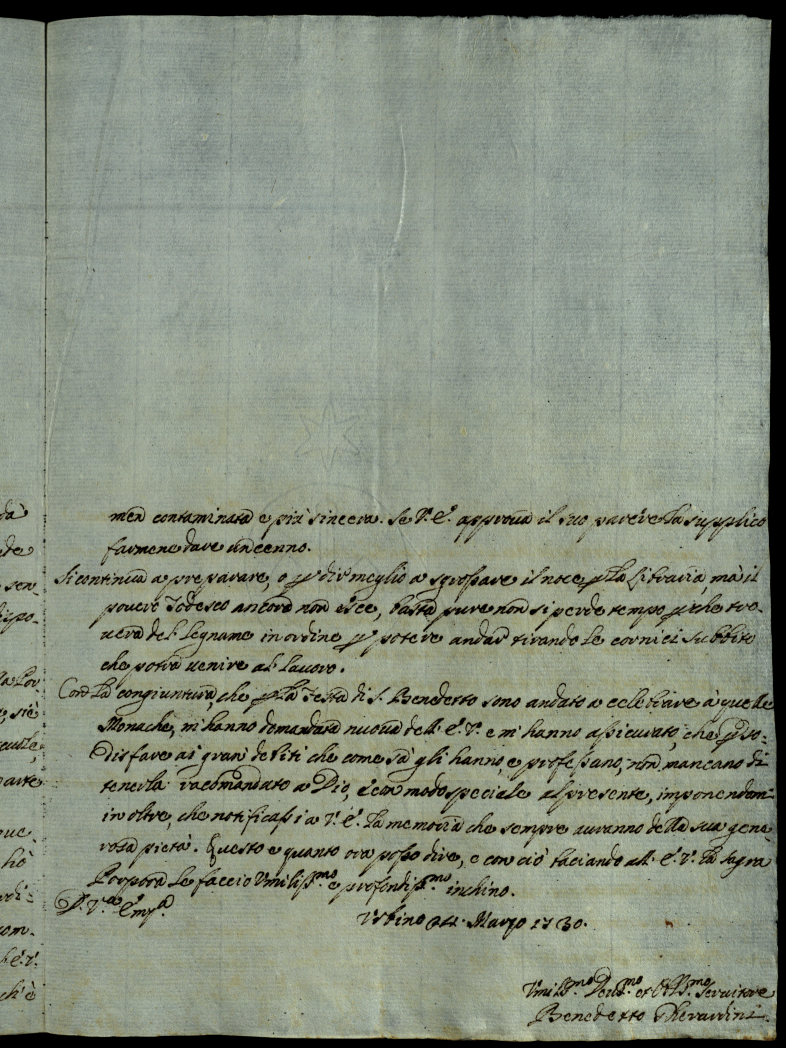 men contaminata e più sincera. Se V. E. approva il suo parere la supplico
farmene dare un cenno.
Si continua a preparare, o p dir meglio a sgrossare il noce p la Libraria, mà il
povero Todesco ancora non esce, basta pure non si perde tempo, pche tro-
verà del legname in ordine p potere andar tirando le cornici subbito
che potrà venire al lavoro.
Con la congiuntura, che p la Festa di S. Benedetto sono andato a celebrare à quelle
Monache, mi hanno domandata nuova dell' E. V. e mi hanno assicurato, che p so-
disfare ai gran debiti che come sà gli hanno, e professano, non mancano di
tenerla racomandato a Dio, e con modo speciale al presente, imponendomi
in oltre, che notificassi a V. E. la memoria che sempre avranno della sua gene
rosa pietà. Questo e quanto ora posso dire, e con ciò baciando all' E. V. la sagra
Porpora le faccio Umiliss.mo e profondiss.mo inchino.
D. V.ra Em.za
Urbino Marzo 1730.
Umil.mo Dev.mo et Obb.mo Servitore
Benedetto Gherardini
da
de
sen
dispo-
la Lor
parte
ue.
hò
com-
ch'è